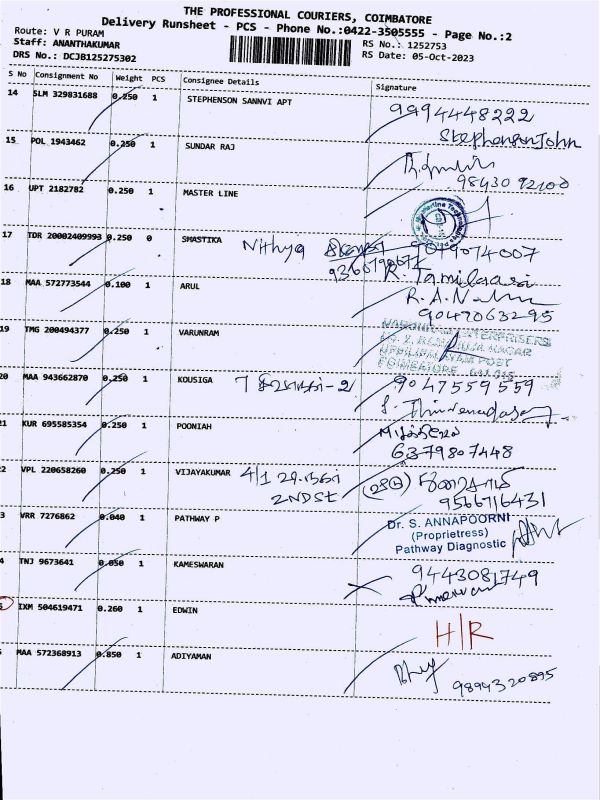 THE PROFESSIONAL COURIERS, COIMBATORE
Delivery Runsheet - PCS - Phone No.:0422-3505555 - Page No.:2
Route: V R PURAM
Staff: ANANTHAKUMAR
RS No.: 1252753
DRS No.: DCJB125275302
RS Date: 05-Oct-2023
S No Consignment No Weight PCS Consignee Details Signature
14 SLM 329831688 0.250 1 STEPHENSON SANNVI APT 9994448222
Stephenson John
15 POL 1943462 0.250 1 SUNDAR RAJ
98430 92100
16 UPT 2182782 0.250 1 MASTER LINE
17 TDR 20002409993 0.250 0 SMASTIKA Nithya
R Tamilarasi
18 MAA 572773544 0.100 1 ARUL
9047063295
19 TMG 200494377 0.250 1 VARUNRAM
20 MAA 943662870 0.250 1 KOUSIGA 9047559559
21 KUR 695585354 0.250 1 POONIAH
6379807448
22 VPL 220658260 0.250 1 VIJAYAKUMAR 4/1
2ND ST
9566716431
3 VRR 7276862 0.040 1 PATHWAY P
Dr. S. ANNAPOORNI
(Proprietress)
Pathway Diagnostic
4 TNJ 9673641 0.050 1 KAMESWARAN 9443081749
IXM 504619471 0.260 1 EDWIN
H/R
MAA 572368913 0.850 1 ADIYAMAN
9894320895